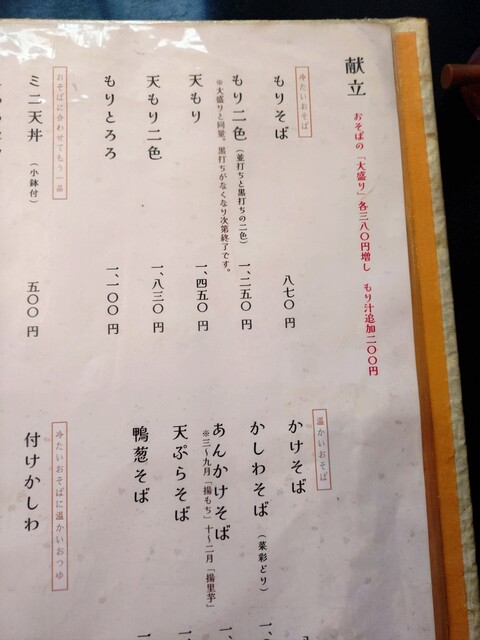 献立
おそばの「大盛り」各三八〇円増し もり汁追加二〇〇円
冷たいおそば
もりそば 八七〇円
もり二色(並打ちと黒打ちの二色) 一、二五〇円
※大盛りと同量。黒打ちがなくなり次第終了です。
天もり 一、四五〇円
天もり二色 一、八三〇円
もりとろろ 一、一〇〇円
おそばに合わせてもう一品
ミニ天丼(小鉢付) 五〇〇円
温かいおそば
かけそば
かしわそば(菜彩どり)
あんかけそば
※三〜九月「揚もち」十〜二月「揚里芋」
天ぷらそば
鴨葱そば
冷たいおそばに温かいおつゆ
付けかしわ